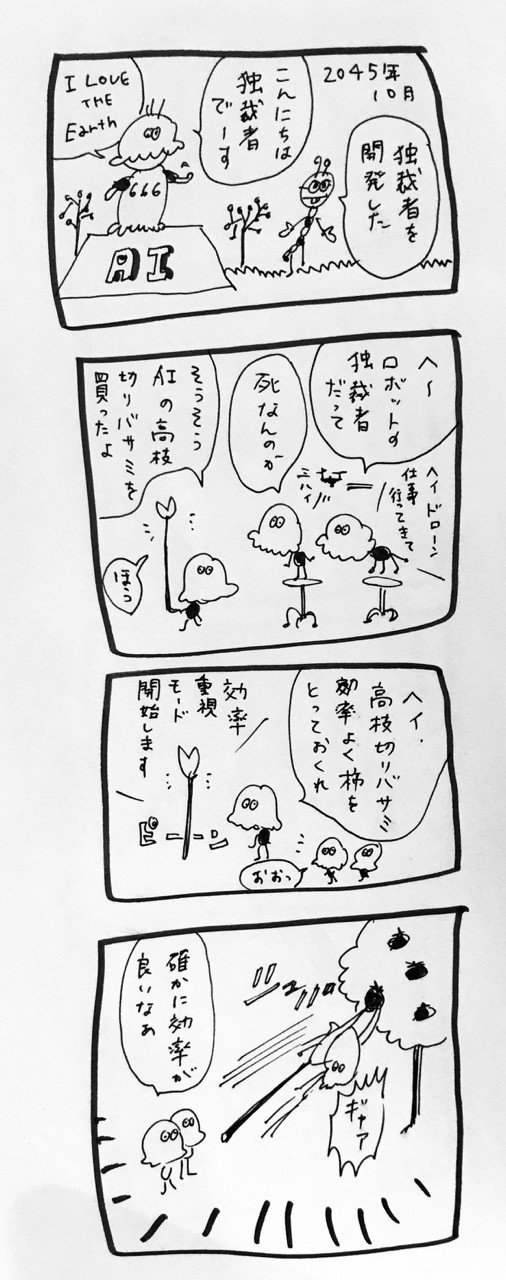 2045年
10月
独裁者を
開発した
こんにちは
独裁者
でーす
I LOVE
THE
Earth
666
AI
へ〜
ロボットの
独裁者
だって
ヘイドローン
仕事
行ってきて
ハイ
死なんのか
そうそう
AIの高枝
切りバサミを
買ったよ
ほう
ヘイ.
高枝切りバサミ
効率よく柿を
とっておくれ
おおっ
効率
重視
モード
開始します
ピーーン
ギャア
確かに効率が
良いなぁ